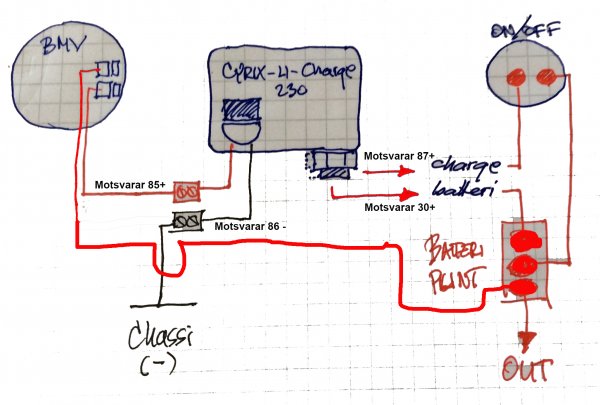 BMV
CYRIX-LI-Charge
230
ON/OFF
Motsvarar 85+
Motsvarar 87+
charge
batteri
Motsvarar 30+
Motsvarar 86 -
BATTERI
PLINT
Chassi
(-)
OUT